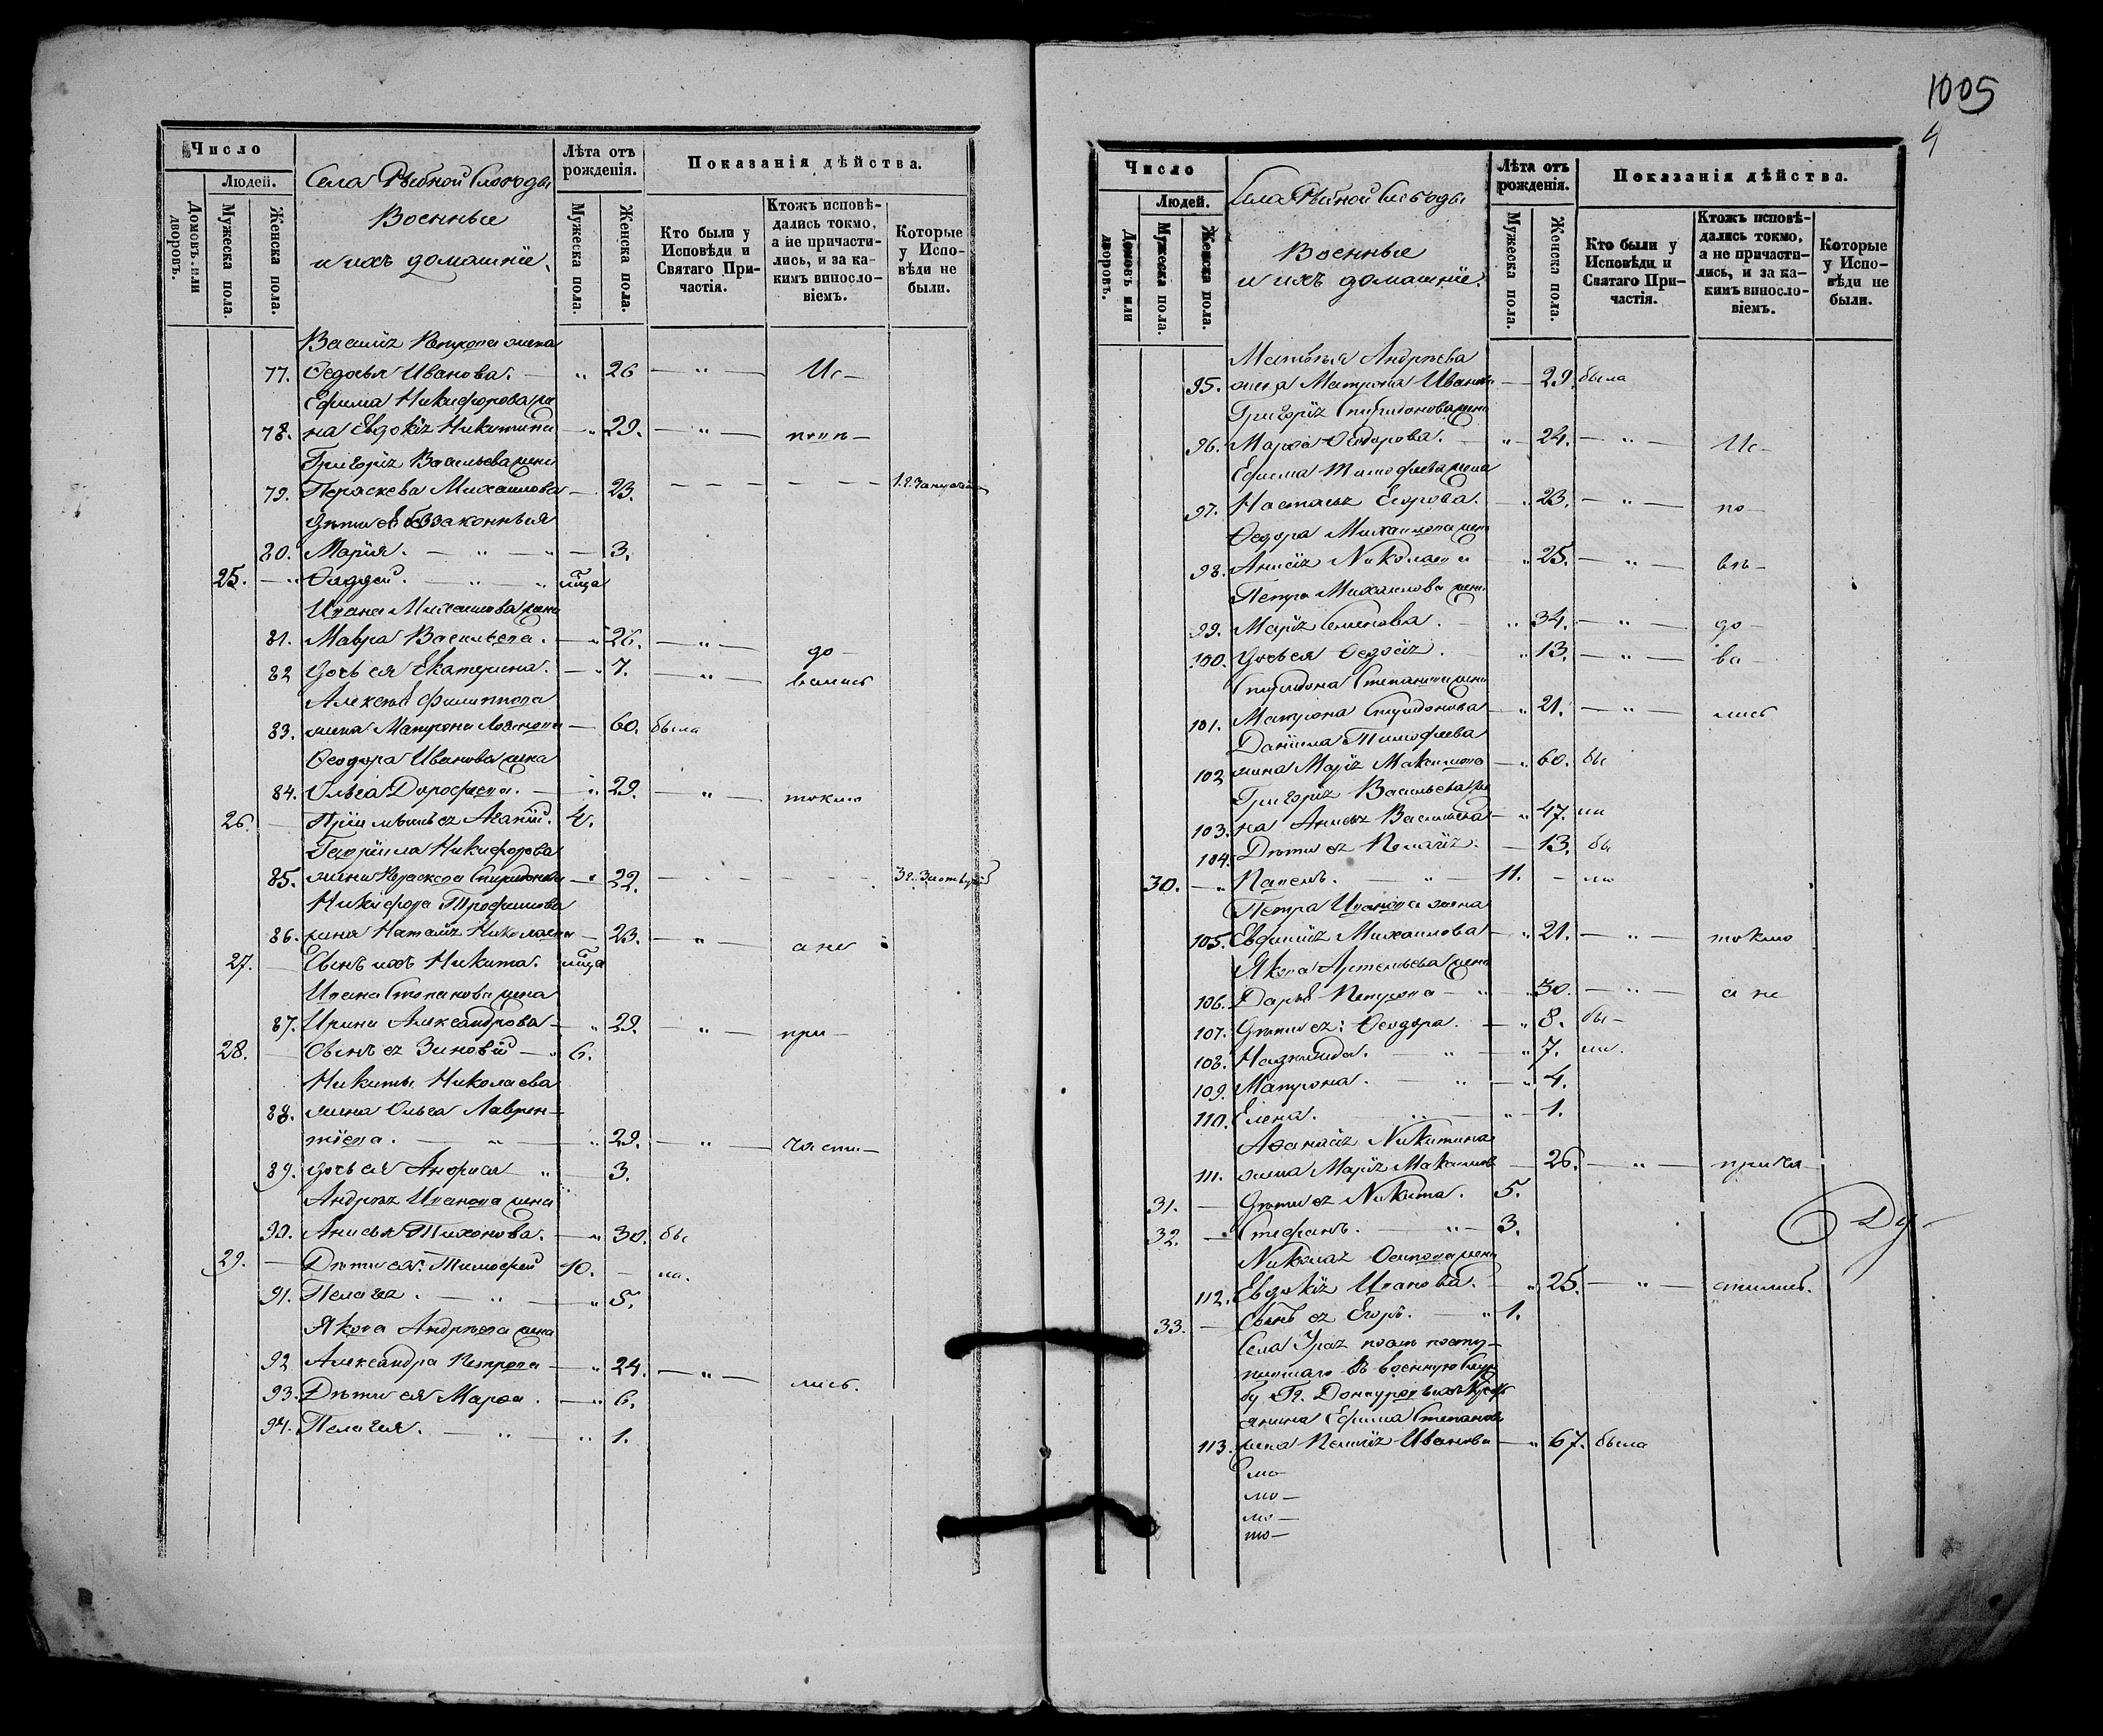 Число
Людей.
Домовъ или дворовъ.
Мужеска пола.
Женска пола.
Села Рыбной Слободы
Военные
и ихъ домашніе.
Лѣта отъ рожденія.
Мужеска пола.
Женска пола.
Показанія дѣйства.
Кто были у Исповѣди и Святаго Причастія.
Ктожъ исповѣ-
дались токмо,
а не причасти-
лись, и за ка-
кимъ винословіемъ.
Которые
у Испо-
вѣди не
были.
Василія Петрова жена
77. Федосья Иванова. — „ 26 — „ — Ис—
Ефима Никифорова же
78. на Евдокія Никитина — „ 29. — „ —
Григорія Васильева жена
79. Параскева Михаилова — 23. — — — — —
Дѣти ея беззаконныя
80. Марія. — „ — „ — 3.
25. — „ Фаддей. — „ — „
Ивана Михаилова жена
81. Мавра Васильева. — „ 26. — „ — до—
82 Дочь ея Екатерина. — „ 7. — „ — вались
Алексѣя Филиппова
83. жена Матрона — 60. была
Феодора Иванова жена
84. Ольга Дорофеева. — „ 29. — „ — токмо
26. — 4.
Гавріила Никифорова
85. жена Параскева Спиридонова — „ 22. — — — —
Никифора Трофимова
86. жена Наталія Николаева — 23. — „ — а не
27. — Сынъ ихъ Никита.
Ивана Степанова жена
87. Ирина Александрова — „ 29. — „ — при—
28. — Сынъ ея Зиновій — „ 6.
Никиты Николаева
88. жена Ольга Лаврен—
тіева. — „ — „ 29. — „ — части—
89. дочь ея Анфиса — „ — 3.
Андрея Иванова жена
90. Анисья Тихонова. — „ 30. бы
29. — Дѣти ея: Тимофей 10. — ла.
91. Пелагея. — „ — „ 5.
Якова Андреева жена
92 Александра Петрова — „ 24. — „ — лись.
93. Дѣти ея Марфа. — „ 6.
94. Пелагея. — „ — „ 1.
1005
4
Число
Людей.
Домовъ или дворовъ.
Мужеска пола.
Женска пола.
Села Рыбной Слободы
Военные
и ихъ домашніе.
Лѣта отъ рожденія.
Мужеска пола.
Женска пола.
Показанія дѣйства.
Кто были у
Исповѣди и
Святаго При-
частія.
Ктожъ исповѣ-
дались токмо,
а не причасти-
лись, и за ка-
кимъ винословіемъ.
Которые
у Испо-
вѣди не
были.
Матвея Андреева
95. жена Матрона Иванова — 29. была
Григорія Спиридонова жена
96. Марфа Феодорова. — „ 24. — „ — Ис—
Ефима Тимофеева жена
97. Настасья Егорова. — „ 23. — „ — по—
Феодора Михаилова жена
98. Анисія Николаева „ 25. — „ — вѣ—
Петра Михаилова жена
99. Марія Семенова. — „ 34. — „ — до—
100. Дочь ея Федосія. „ 13. — „ — ва—
Спиридона Степанова жена
101. Матрона Спиридонова — „ 21. — „ — лись
Даніила Тимофеева
102 жена Марія Максимова — „ 60. бы
Григорія Васильева же
103. на Анисья Васильева — „ 47. ли
104. Дѣти ея Пелагія. — 13. бы
30. — „ Павелъ. — „ — 11. — ло
Петра Иванова жена
105. Евфимія Михаилова — „ 21. — „ — токмо
Якова Артемьева жена
106. Дарья Петрова — „ — 30. — „ — а не
107. Дѣти ея: Феодора. — „ 8. бы—
108. — „ — „ 7. ли.
109. Матрона. — „ — „ 4.
110. Елена. — „ — „ 1.
Афанасія Никитина
111. жена Марія Максимова — 26. — „ —
31. — Дѣти ея Никита. 5.
32. — Стефанъ. — „ — 3.
Николая Осипова жена
112. Евдокія Иванова. — „ 25. — „ — стились.
33. — Сынъ ея Егоръ. — „ 1.
Села посту—
пившаго въ военную служ
бу Ефима Степанова
113. жена Пелагія Иванова — „ 67. была